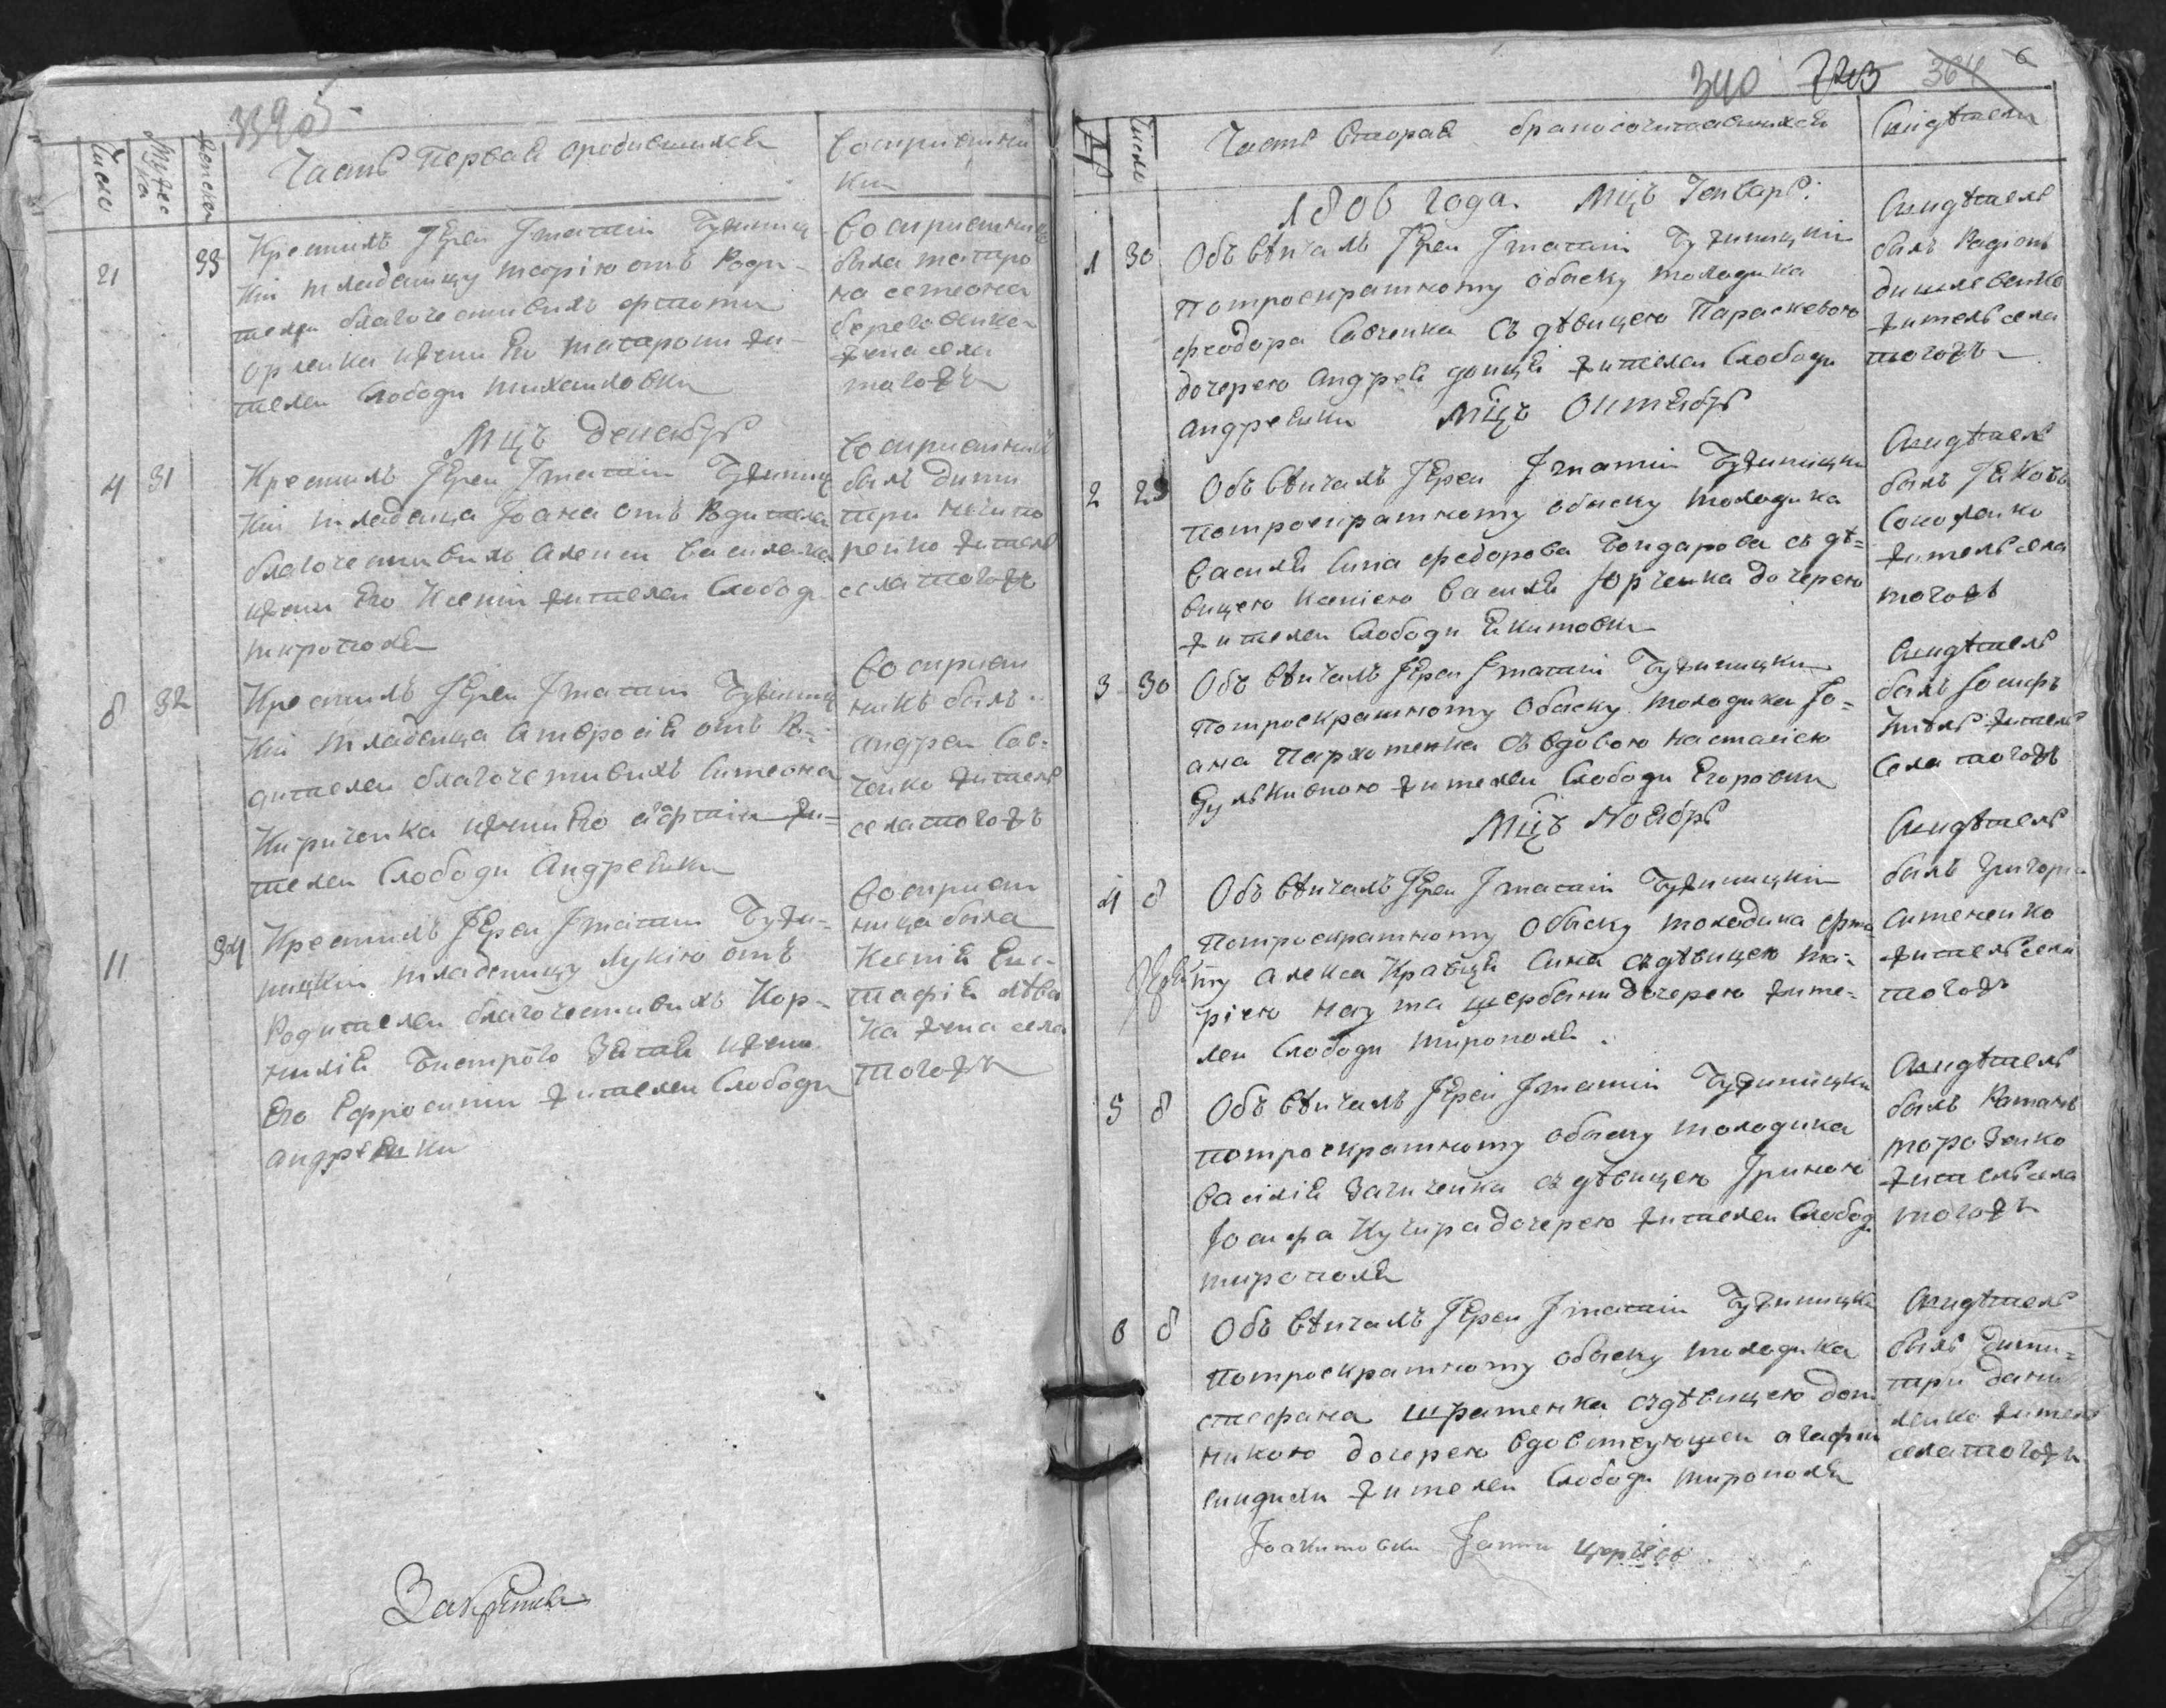 339 об
Число
Мужес
ка
Женска
Часть Первая ородившихся
Восприемни
ки
21
33
Крестилъ Іерей Игнатій Бужиниц
кій младеницу Марію отъ Роди-
телей благочестивихъ
Орленка ижени Его Матрони жи-
телей Слободи Михаиловки
Восприемница
била Матро
на Семеона
береговенка
жена села
тогожъ
Мцъ Декабръ
4
31
Крестилъ Іерей Игнатій Бужиниц
кій младенца Іоана отъ Родителей
благочестивихъ Алексія Василенка
ижени Его Ксеніи жителей Слобод
мирополя
Восприемникъ
билъ Дими
трій Ничипо
ренко житель
села тогожъ
8
32
Крестилъ Іерей Игнатій Бужиниц
кій младенца Амвросія отъ Ро-
дителей благочестивихъ Симеона
Кириченка ижени Его жи=
телей Слободи Андреевки
Восприем
никъ билъ
Андрей Сав-
ченко житель
села тогожъ
11
34
Крестилъ Іерей Игнатій Бужи-
ницкій младеницу Лукію отъ
Родителей благочестивихъ Кор-
нилія Бистрого Зятя ижени
Его Ефросиніи жителей Слободи
Андреевки
Восприем
ница била
Ксенія Евс-
тафія
ка жена села
тогожъ
340 723 364 6
№
Число
Часть вторая бракосочитавшихся
Свидѣтели
1806 года. Мцъ Генваръ:
1
30
Объ вѣнчалъ Іерей Игнатій Бужиницкій
потроекратному обыску молодика
феодора Савченка съ дѣвицею Параскевою
дочерею Андрея донця жителей Слободи
Андреевки
Свидѣтель
билъ Радіонъ
жительсела
тогожъ
Мцъ Октябръ
2
23
Объ вѣнчалъ Іерей Игнатій Бужиницкій
потроекратному обыску молодика
Василя Сина федорова Бондарова съ дѣ=
вицею Ксеніею Василя Юрченка дочерею
жителей Слободи Екимовки
Свидѣтель
билъ Яковъ
Соколенко
жительсела
тогожъ
3
30
Объ вѣнчалъ Іерей Игнатій Бужиницкій
потроекратному Обыску молодика Іо=
ана Пархоменка съ вдовою Настасіею
жителей Слободи Егоровки
Свидѣтель
билъ Іосифъ
житель
Села тогожъ
Мцъ Ноябръ
4
8
Объ вѣнчалъ Іерей Игнатій Бужиницкій
потроекратному Обыску молодика
Алекса Кравця Сина съдѣвицею Ма-
ріею Наума щербани дочерею жите=
лей Слободи мирополя.
Свидѣтель
билъ Григорій
Симененко
жительсела
тогожъ
5
8
Объ вѣнчалъ Іерей Игнатій Бужиницкій
потроекратному обыску молодика
Василія съдѣвицею Іриною
Іосифа Кучирадочерею жителей Слободи
мирополя
Свидѣтель
билъ Раманъ
морозенко
жительсела
тогожъ
6
8
Объ вѣнчалъ Іерей Игнатій Бужиницкій
потроекратному обыску молодика
стефана шраменка съдѣвицею дом
никою дочерею вдовствующей агафіи
жителей Слободи мирополя
Свидѣтель
билъ Дими=
трій дани
ленко житель
села тогожъ